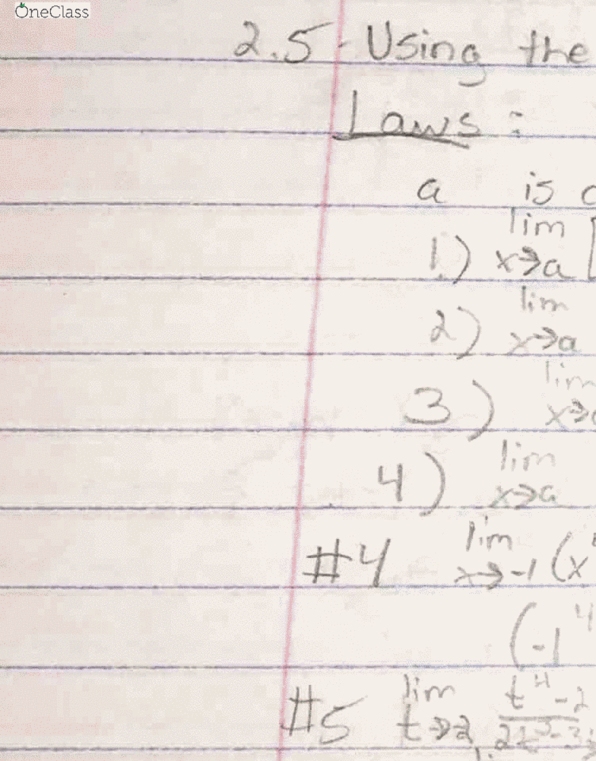 OneClass
2.5 - Using the
Laws:
a is
1.) lim x→a [
2) lim x→a
3) lim x→a
4) lim x→a
#4 lim x→-1 (x⁴
(-1⁴
#5 lim t→2 t⁴-2